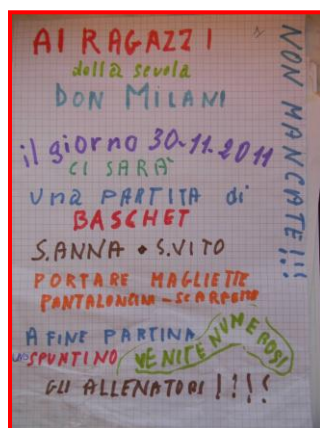 AI RAGAZZI
della scuola
DON MILANI
il giorno 30-11-2011
CI SARÀ
una PARTITA di
BASCHET
S.ANNA • S.VITO
PORTARE MAGLIETTE
PANTALONCINI - SCARPETTE
A FINE PARTINA
UNO SPUNTINO
VENITE NUMEROSI
GLI ALLENATORI !!!!
NON MANCATE!!!